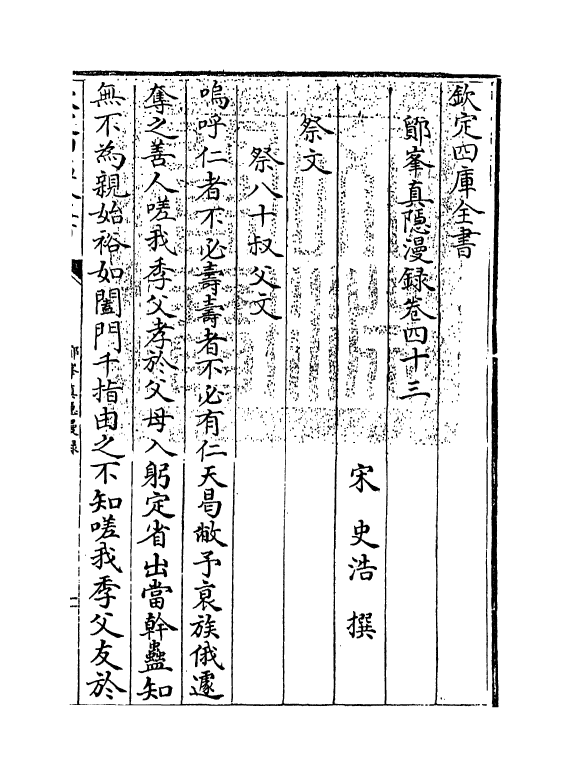 欽定四庫全書
鄮峯真隱漫録卷四十三
宋 史浩 撰
祭文
祭八十叔父文
嗚呼仁者不必壽壽者不必有仁天曷敝予哀族俄遽
奪之善人嗟我季父孝於父母入躬定省出當幹蠱知
無不為親始裕如闔門千指由之不知嗟我季父友於
鄮峯真隱漫録